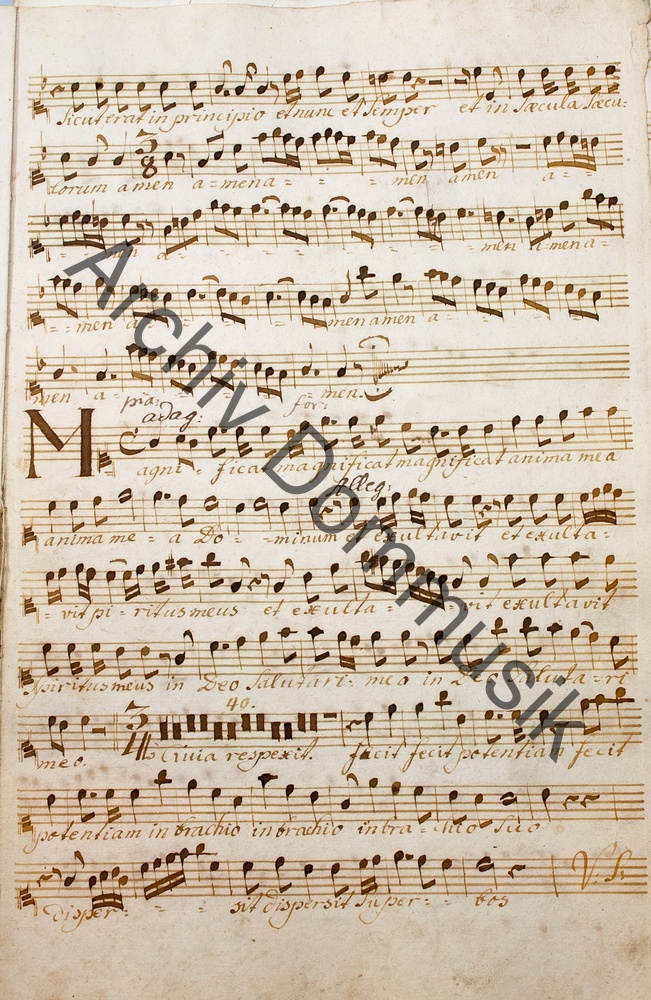 Sicut erat in principio et nunc et semper et in Sæcula Sæcu-
lorum amen a-mena - - - men amen a - -
- - men a - - - - - men a-mena -
- - men a - - - men amen a - -
men a - - - men.
pia: for:
adag:
Magni - ficat magnificat magnificat anima mea
alleg:
anima me - a Do - minum et exultavit et exulta -
- vit spi - ritus meus et exulta - - vit exultavit
spiritus meus in Deo Salutari - meo in Deo Saluta - ri
40.
meo. 3/4 Quia respexit. fecit fecit potentiam fecit
potentiam in brachio in brachio in bra - chio Suo
disper - - - sit dispersit Super - bos V: S:
Archiv Dommusik